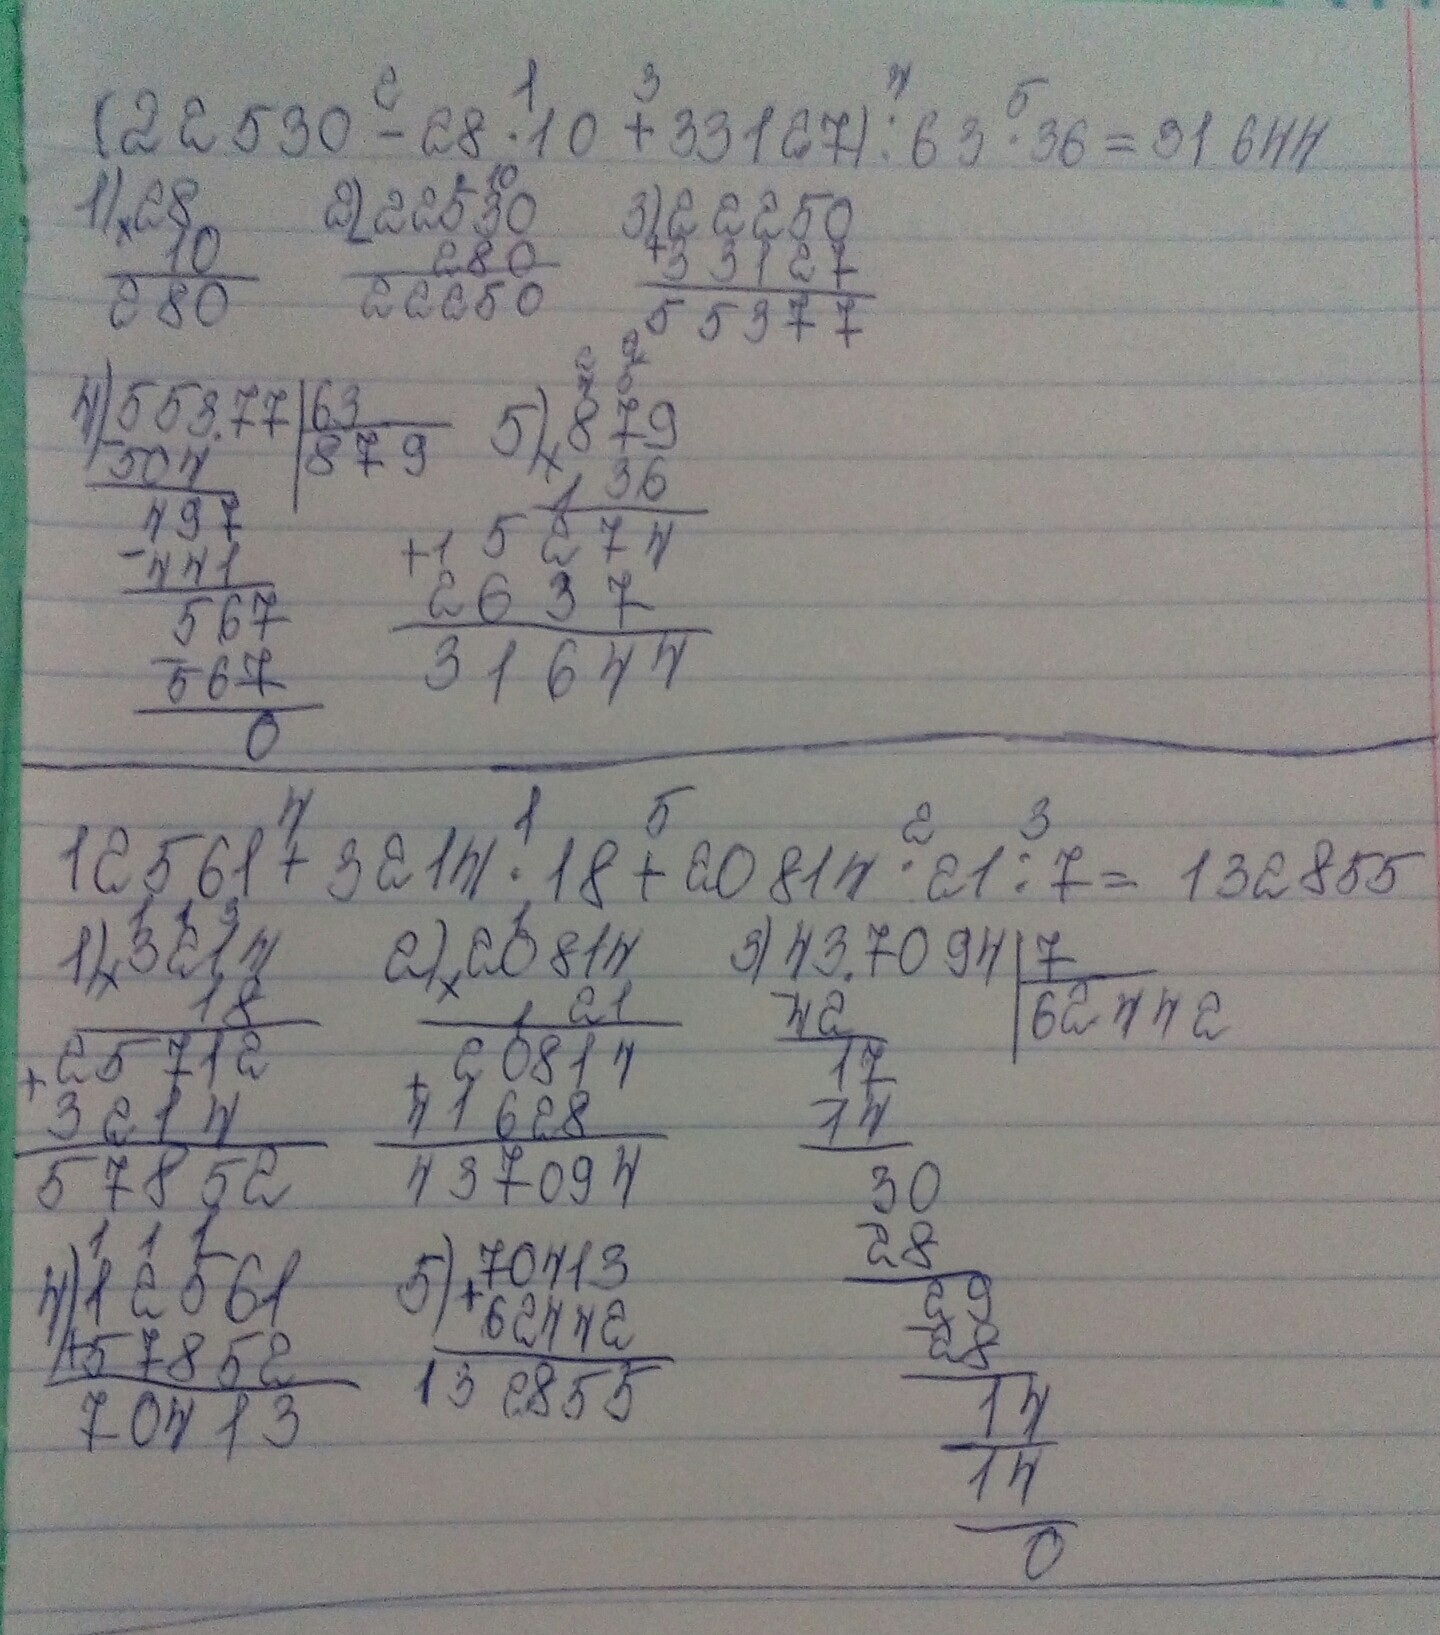 2 1 3 4 5
(22530 - 28 · 10 + 33127) : 63 · 36 = 31644
1) 28 2) 22530 3) 22250
× 10 - 280 + 33127
280 22250 55377
4) 55377 | 63 5) × 879
- 504 879 36
497 5274
- 441 + 2637
567 31644
- 567
0
4 1 5 2 3
12561 + 3214 · 18 + 20814 · 21 : 7 = 132855
1) × 3214 2) × 20814 3) 437094 | 7
18 21 - 42 62442
25712 20814 17
+ 3214 + 41628 - 14
57852 437094 30
- 28
4) 12561 5) 70413 29
+ 57852 + 62442 - 28
70413 132855 14
14
0